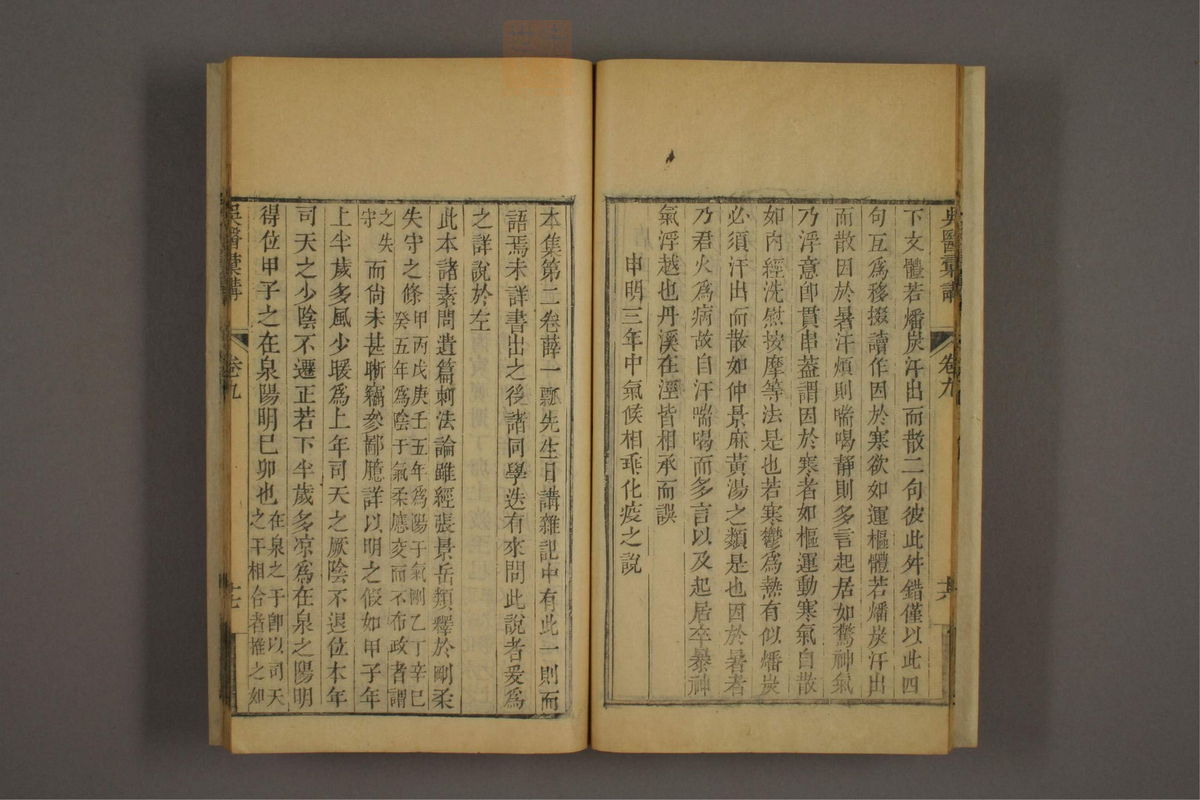 吳醫彙講
卷九
十六
下文體若燔炭汗出而散二句彼此舛錯僅以此四
句互爲移掇讀作因於寒欲如運樞體若燔炭汗出
而散因於暑汗煩則喘喝靜則多言起居如驚神氣
乃浮意卽貫串蓋謂因於寒者如樞運動寒氣自散
如內經洗慰按摩等法是也若寒鬱爲熱有似燔炭
必須汗出而散如仲景麻黃湯之類是也因於暑者
乃君火爲病故自汗喘喝而多言以及起居卒暴神
氣浮越也丹溪在涇皆相承而誤
申明三年中氣候相乖化疫之說
本集第二卷薛一瓢先生日講雜記中有此一則而
語焉未詳書出之後諸同學迭有來問此說者爰爲
之詳說於左
此本諸素問遺篇刺法論雖經張景岳類釋於剛柔
失守之條甲丙戊庚壬五年爲陽干氣剛乙丁辛巳
癸五年爲陰干氣柔應變而不布政者謂
之失
守
而尙未甚晰竊參鄙臆詳以明之假如甲子年
上半歲多風少暖爲上年司天之厥陰不退位本年
司天之少陰不遷正若下半歲多凉爲在泉之陽明
得位甲子之在泉陽明巳卯也在泉之干卽以司天
之干相合者推之如
吳醫彙講
卷九
十七